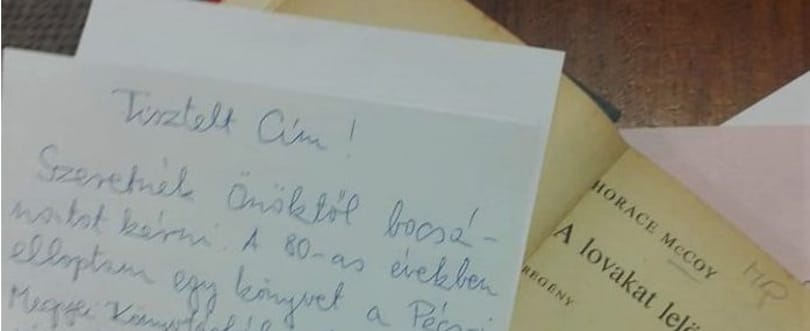 Tisztelt Cím!
Szeretnék Önöktől bocsá-
natot kérni. A 80-as években
elloptam egy könyvet a Pécsi
Megyei
HORACE McCOY
A lovakat lelö
REGÉNY